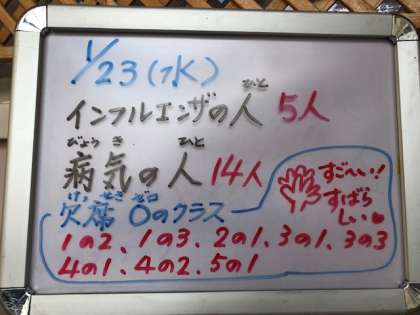 1/23(水)
ひと
インフルエンザの人 5人
びょうき ひと
病気の人 14人
けっせきゼロ
欠席0のクラス
すご〜い!
すばら
しい
1の2、1の3、2の1、3の1、3の3
4の1、4の2、5の1